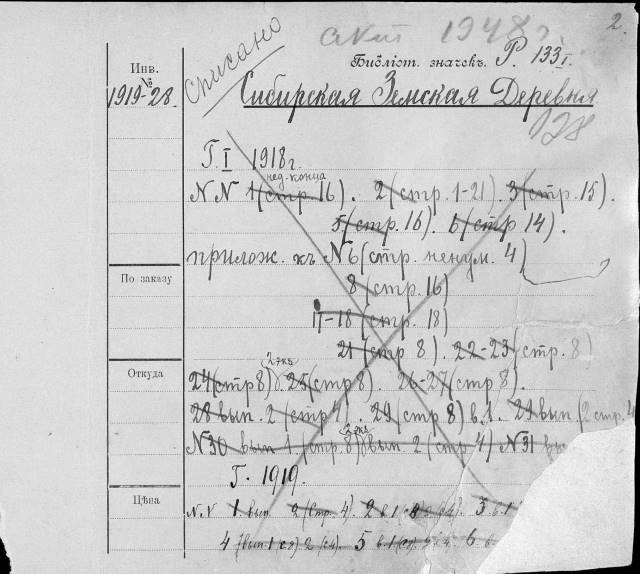 2.
Списано
акт 1948 г.
Инв.
№
1919-28.
Библіот. значекъ. Р. 133 I.
Сибирская Земская Деревня
128
Г. I 1918 г.
нед. конца
N N 1 (стр. 16). 2 (стр. 1-21). 3 (стр. 15).
5 (стр. 16). 6 (стр. 14).
прилож. къ N 6 (стр. ненум. 4)
По заказу
8 (стр. 16)
17-18 (стр. 18)
21 (стр 8). 22-23 (стр. 8)
Откуда
2 экз.
24 (стр 8) 25 (стр 8). 26-27 (стр 8).
28 вып. 2 (стр 4). 29 (стр 8) в.1. 29 вып. (2 стр. 4
2 экз
N 30 вып 1 (стр. 8) вып. 2 (стр 4) N 31
Г. 1919.
Цѣна
N N 1. вып 2 (стр. 4). 2 в 1 3 в. 1
4 (вып. 1 2 5 в. 1 6. в.